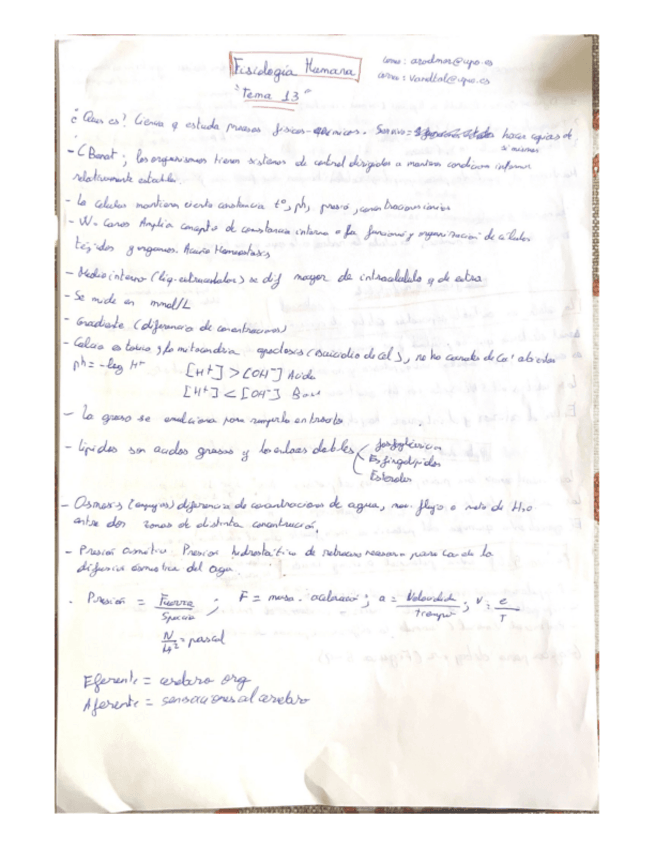 Fisiología Humana
"Tema 13"
¿Qué es? Ciencia q estudia procesos físicos-químicos. hacer copias de
si mismos
- los organismos tienen sistemas de control dirigidos a mantener condiciones internas
relativamente estables.
- la células mantiene cierta constancia tº, ph, presió, concentracion iónica
- W. Canon Amplia concepto de constancia interna a la funcion y organización de células
tejidos y organos. Homeostasis
- Medio interno (liq. extracelular) se dif mayor de intracelular y de extra
- Se mide en mmol/L
- Gradiente (diferencia de concentraciones)
- Calcio es toxico y la mitocondria apoptosis (suicidio de cel),
ph = -log H⁺ [H⁺] > [OH⁻] Acido
[H⁺] < [OH⁻] Base
- La grasa se emulciona para
- lipidos son acidos grasos y los enlaces dobles
fosfoglicéridos
Esfingolipidos
Esteroles
- Osmosis diferencia de concentraciones de agua, mov. flujo o neto de H₂O
entre dos zonas de distinta concentración.
- Presión osmótica Presion hidrostática de retroceso necesaria para la
difusión osmotica del agua.
. Presión = Fuerza ; F = masa . aceleració ; a = Velocidad ; v = e
tiempo T
N = pascal
Eferente = cerebro org
Aferente = sensaciones al cerebro